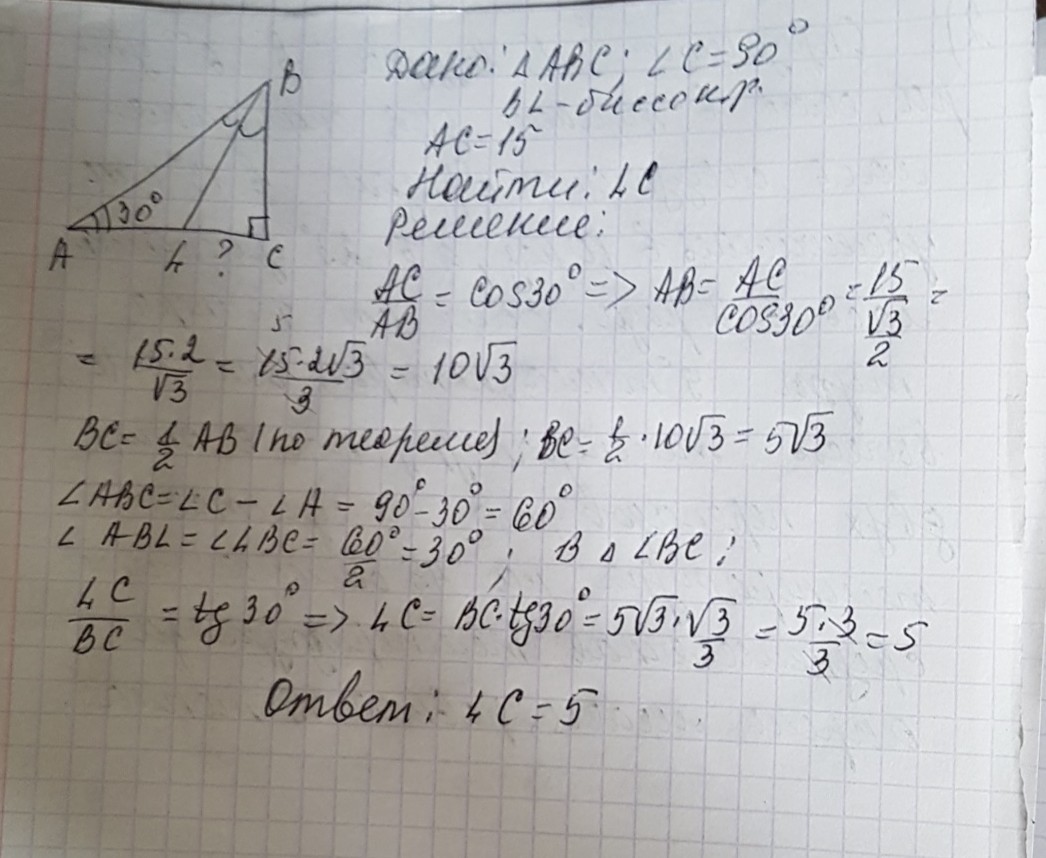 Дано: △ABC; ∠C=90°
BL-биссектр.
AC=15
Найти: LC
Решение:
B
30°
A L ? C
AC/AB = cos30° => AB= AC/cos30° = 15/(√3/2) =
= 15·2/√3 = 15·2√3/3 = 10√3
5
BC= 1/2 AB (по теореме); BC= 1/2 ·10√3 = 5√3
∠ABC=∠C-∠A = 90°-30°=60°
∠ABL=∠LBC= 60°/2 =30°; В △LBC;
LC/BC = tg30° => LC= BC·tg30°= 5√3·√3/3 = 5·3/3 = 5
Ответ: LC=5